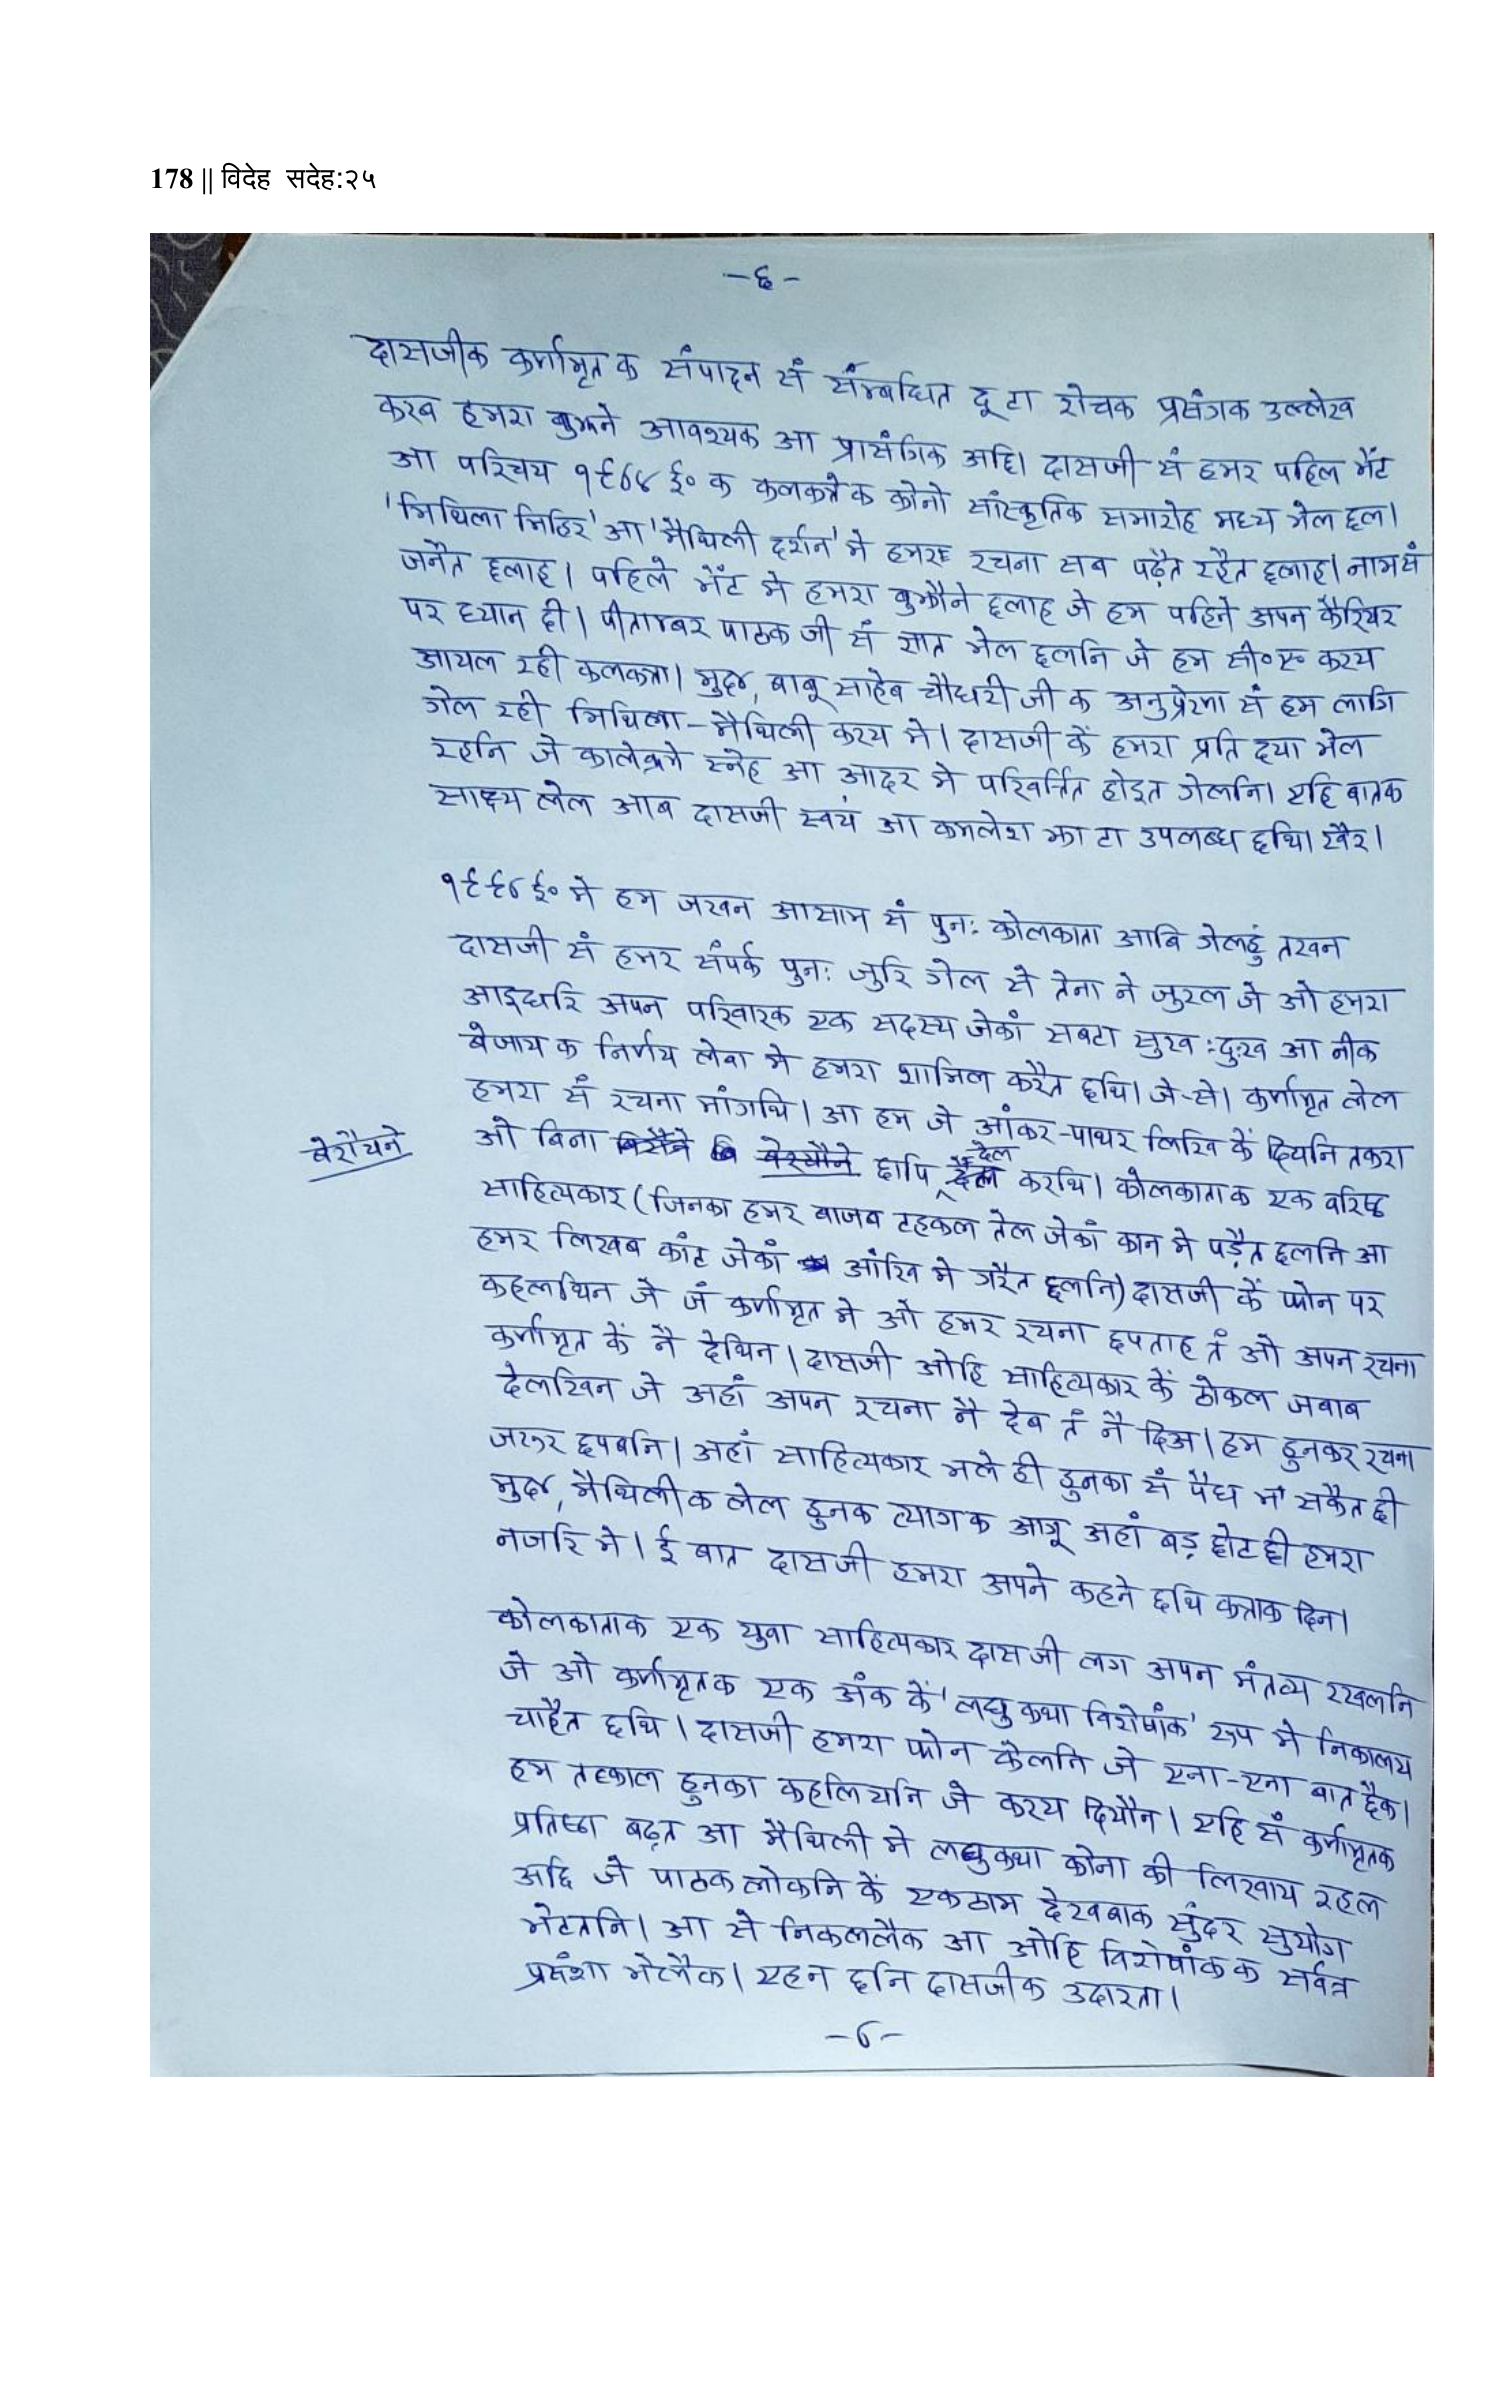 178 || विदेह सदेह:२५
-६-
दासजीक कर्णामृत क संपादन सं संम्बधित दू टा रोचक प्रसंगक उल्लेख
करब हमरा बुझने आवश्यक आ प्रासंगिक अछि। दासजी सं हमर पहिल भेंट
आ परिचय १९७४ ई० क कलकत्तेक कोनो सांस्कृतिक समारोह मध्य भेल छल।
'मिथिला मिहिर' आ 'मैथिली दर्शन' मे हमर रचना सब पढ़ैत रहैत छलाह। नाम सं
जनैत छलाह। पहिले भेंट मे हमरा बुझौने छलाह जे हम पहिने अपन कैरियर
पर ध्यान दी। पीताम्बर पाठक जी सं ज्ञात भेल छलनि जे हम सी०ए० करय
आयल रही कलकत्ता। मुदा, बाबू साहेब चौधरी जी क अनुप्रेरणा सं हम लागि
गेल रही मिथिला-मैथिली करय मे। दासजी कें हमरा प्रति दया भेल
रहनि जे कालेक्रमे स्नेह आ आदर मे परिवर्त्तित होइत गेलनि। एहि बातक
साक्ष्य लेल आब दासजी स्वयं आ कमलेश झा टा उपलब्ध छथि। खैर।
१९९७ ई० मे हम जखन आसाम सं पुनः कोलकाता आबि गेलहुं तखन
दासजी सं हमर संपर्क पुनः जुरि गेल से तेना ने जुरल जे ओ हमरा
आइधरि अपन परिवारक एक सदस्य जेकां सबटा सुख:दुःख आ नीक
बेजाय क निर्णय लेबा मे हमरा शामिल करैत छथि। जे-से। कर्णामृत लेल
हमरा सं रचना मांगथि। आ हम जे आंकर-पाथर लिखि कें दियनि तकरा
बेरौयने
ओ बिना छापि देल करथि। कोलकाताक एक वरिष्ठ
साहित्यकार (जिनका हमर बाजब टहकल तेल जेकां कान मे पड़ैत छलनि आ
हमर लिखब कांट जेकां आंखि मे गरैत छलनि) दासजी कें फोन पर
कहलथिन जे जं कर्णामृत मे ओ हमर रचना छपताह तं ओ अपन रचना
कर्णामृत कें नै देथिन। दासजी ओहि साहित्यकार कें ठोकल जवाब
देलखिन जे अहां अपन रचना नै देब तं नै दिअ। हम हुनकर रचना
जरूर छपबनि। अहां साहित्यकार भले ही हुनका सं पैघ भ' सकैत छी
मुदा, मैथिलीक लेल हुनक त्यागक आगू अहां बड़ छोट छी हमरा
नजरि मे। ई बात दासजी हमरा अपने कहने छथि कताक दिन।
कोलकाताक एक युवा साहित्यकार दासजी लग अपन मंतव्य रखलनि
जे ओ कर्णामृतक एक अंक कें 'लघुकथा विशेषांक' रूप मे निकालय
चाहैत छथि। दासजी हमरा फोन कैलनि जे एना-एना बात छैक।
हम तत्काल हुनका कहलियनि जे करय दियौन। एहि सं कर्णामृतक
प्रतिष्ठा बढ़त आ मैथिली मे लघुकथा कोना की लिखाय रहल
अछि जे पाठक लोकनि कें एकठाम देखबाक सुंदर सुयोग
भेटतनि। आ से निकललैक आ ओहि विशेषांकक सर्वत्र
प्रसंशा भेलैक। एहन छनि दासजीक उदारता।
-७-